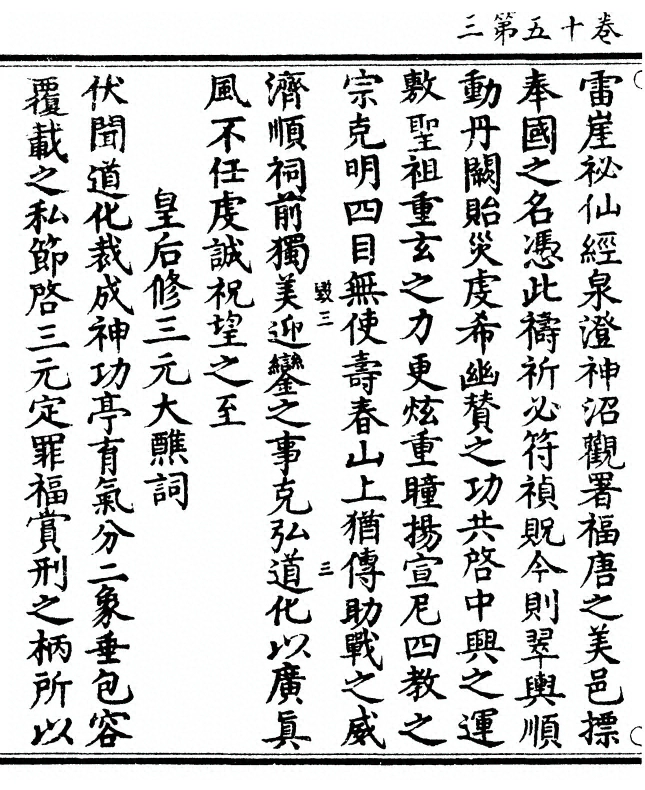 卷十五第三
雷崖祕仙經泉澄神沼觀署福唐之美邑摽
奉國之名憑此禱祈必符禎貺今則翠輿順
動丹闕貽災虔希幽贊之功共啓中興之運
敷聖祖重玄之力更炫重瞳揚宣尼四教之
宗克明四目無使壽春山上猶傳助戰之威
毀三
三
濟順祠前獨美迎鑾之事克弘道化以廣眞
風不任虔誠祝望之至
皇后修三元大醮詞
伏聞道化裁成神功亭有氣分二象垂包容
覆載之私節啓三元定罪福賞刑之柄所以